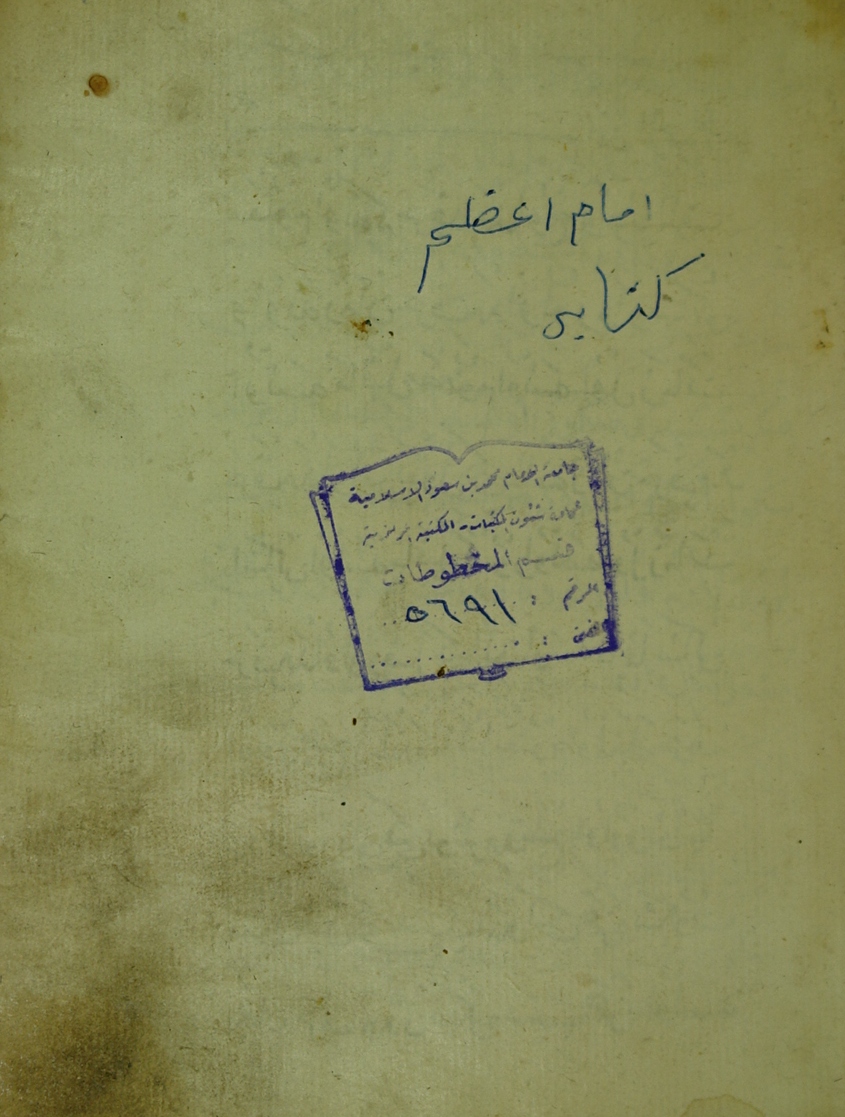 امام اعظم
كتابى
جامعة الامام محمد بن سعود الاسلامية
عمادة شئون المكتبات - المكتبة المركزية
قسم المخطوطات
الرقم : ٥٦٩١
الفن : ............